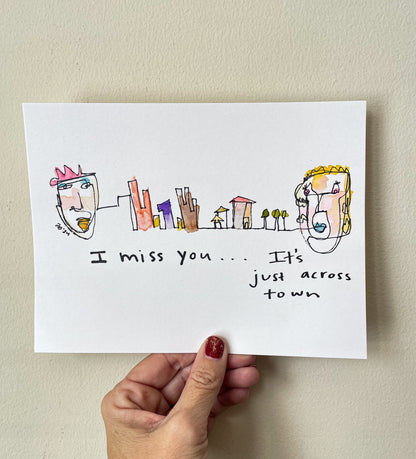 I miss you . . . It's
just across
town